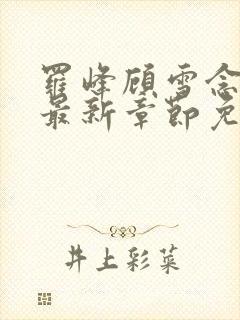 羅峰顾雪念
最新章節免
井上彩菜